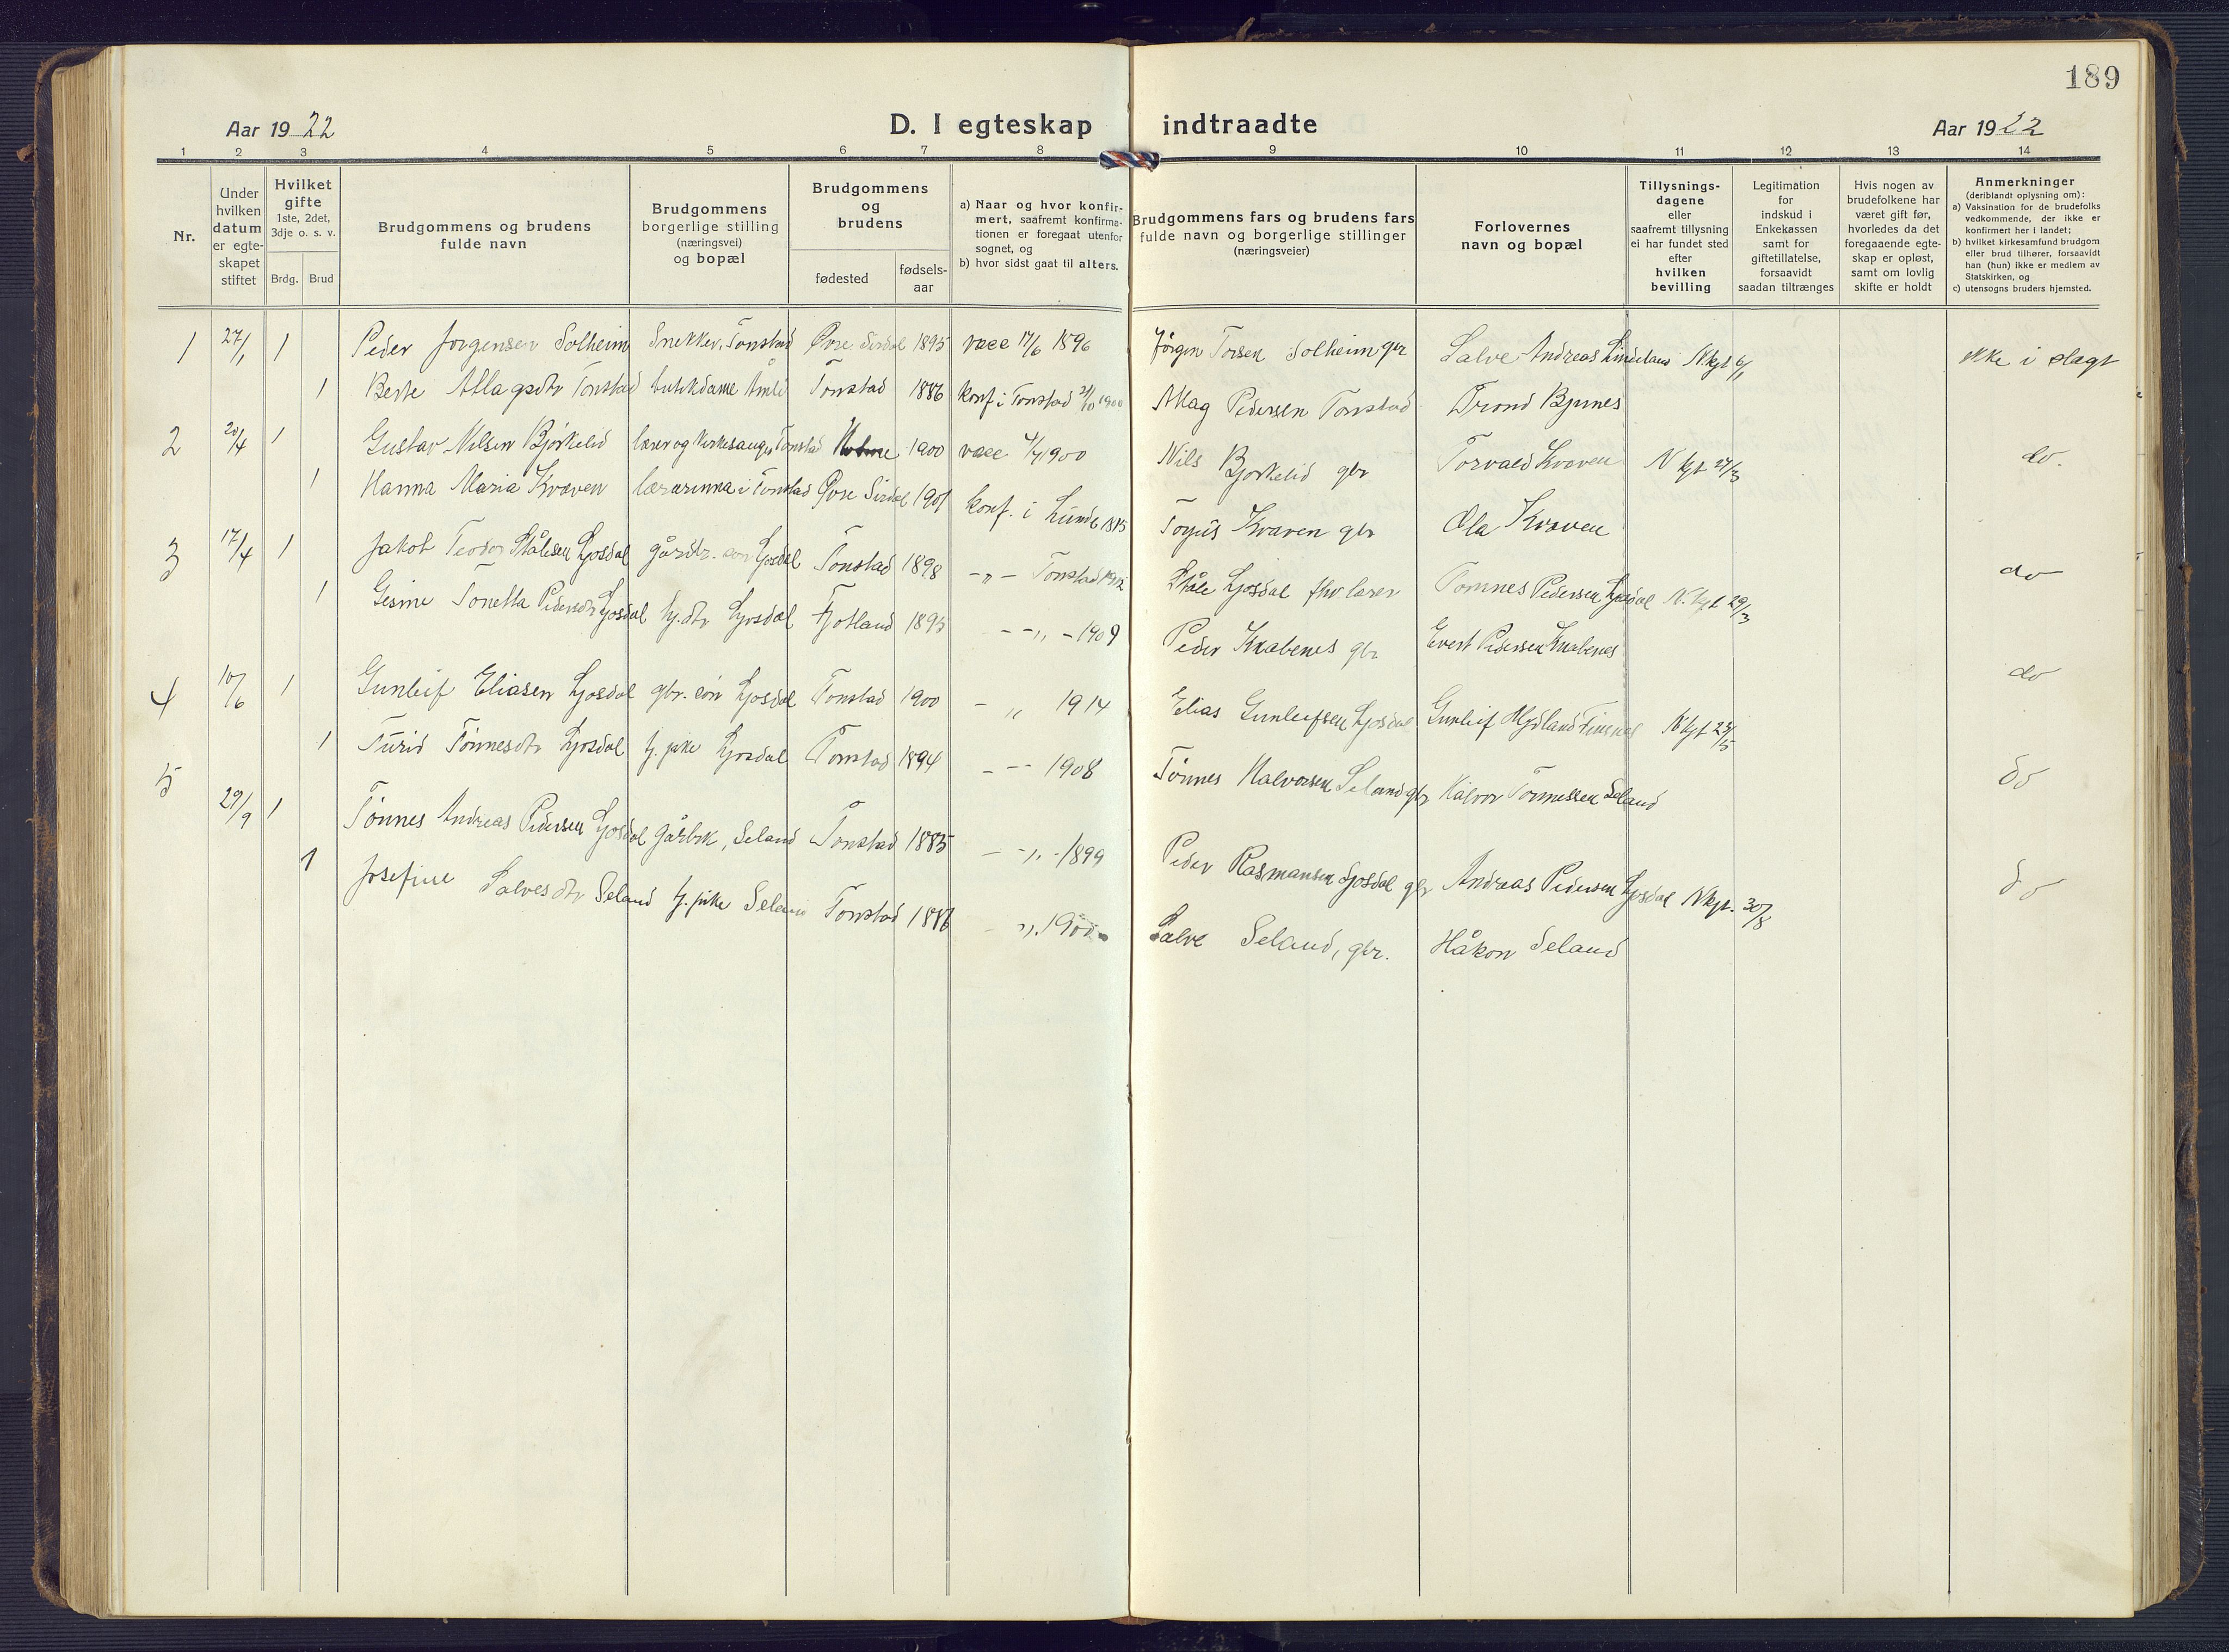 189
Aar 1922
D. I egteskap indtraadte
Aar 1922
1 2 3 4 5 6 7 8 9 10 11 12 13 14
Nr.
Under hvilken datum er egte-skapet stiftet
Hvilket gifte 1ste, 2det, 3dje o. s. v.
Brdg. Brud
Brudgommens og brudens fulde navn
Brudgommens borgerlige stilling (næringsvei) og bopæl
Brudgommens og brudens
fødested
fødsels-aar
a) Naar og hvor konfir-mert, saafremt konfirma-tionen er foregaat utenfor sognet, og
b) hvor sidst gaat til alters.
Brudgommens fars og brudens fars fulde navn og borgerlige stillinger (næringsveier)
Forlovernes navn og bopæl
Tillysnings-dagene eller saafremt tillysning ei har fundet sted efter hvilken bevilling
Legitimation for indskud i Enkekassen samt for giftetillatelse, forsaavidt saadan tiltrænges
Hvis nogen av brudefolkene har været gift før, hvorledes da det foregaaende egte-skap er opløst, samt om lovlig skifte er holdt
Anmerkninger (deriblandt oplysning om):
a) Vaksination for de brudefolks vedkommende, der ikke er konfirmert her i landet;
b) hvilket kirkesamfund brudgom eller brud tilhører, forsaavidt han (hun) ikke er medlem av Statskirken, og
c) utensogns bruders hjemsted.
1 27/1 1 Peder Jørgensen Solheim Snekker, Tonstad Øvre Sirdal 1895 vacc 17/6 1896 Jørgen Torsen Solheim gbr Salve Andreas Lindeland N.kgt 6/1 ikke i slægt
1 Berte Atlagsdtr Tonstad butikdame Åmli Tonstad 1886 konf i Tonstad 21/10 1900 Atlag Pedersen Tonstad Trond Bjunes
2 20/4 1 Gustav Nilsen Bjørkelid lærer og kirkesanger Tonstad 1900 vacc 4/7 1900 Nils Bjørkelid gbr Torvald Kvaven N kgt 27/3 do.
1 Hanna Maria Kvaven lærarinna i Tonstad Øvre Sirdal 1901 konf. i Lunde 1915 Torjus Kvaven gbr Ola Kvaven
3 17/4 1 Jakob Teodor Ståksen Josdal gårdbr. søn Josdal Tonstad 1898 -"- Tonstad 1912 Ståle Josdal fhv lærer Tomnes Pedersen Josdal N.kgt 29/3 do
1 Gesine Tonetta Pedersdtr Josdal hj.dtr Josdal Fjotland 1895 -"- 1909 Peder Knabenes gbr Evert Pedersen Knabenes
4 10/6 1 Gunleif Eliasen Josdal gbr. søn Josdal Tonstad 1900 - " 1914 Elias Gunleifsen Josdal Gunleif Hydland N kgt 23/5 do
1 Turid Tönnesdtr Josdal hj. pike Josdal Tonstad 1894 - - 1908 Tönnes Halvorsen Seland gbr Halvor Tönnessen Seland
5 29/9 1 Tönnes Andreas Pedersen Josdal gårbrk, Seland Tonstad 1885 - " - 1899 Peder Rasmussen Josdal gbr Andreas Pedersen Josdal Nkgt. 30/8 do
1 Josefine Salvesdtr Seland hj. pike Seland Tonstad 1886 - " 1900 Salve Seland, gbr. Håkon Seland do